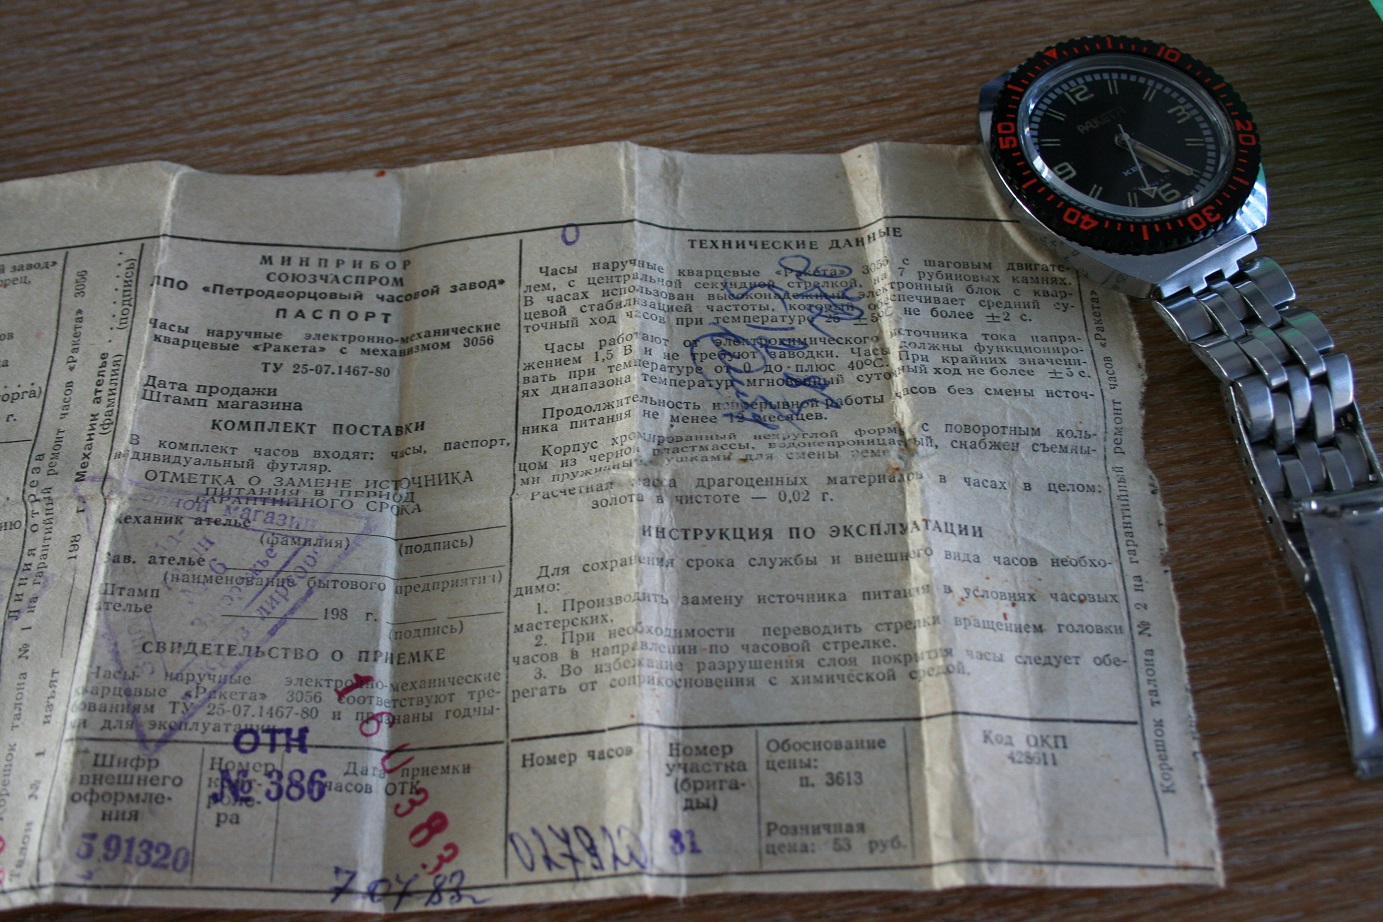 МИНПРИБОР
СОЮЗЧАСПРОМ
ЛПО «Петродворцовый часовой завод»
ПАСПОРТ
Часы наручные электронно-механические
кварцевые «Ракета» с механизмом 3056
ТУ 25-07.1467-80
Дата продажи
Штамп магазина
КОМПЛЕКТ ПОСТАВКИ
В комплект часов входят: часы, паспорт,
индивидуальный футляр.
ОТМЕТКА О ЗАМЕНЕ ИСТОЧНИКА
ПИТАНИЯ В ПЕРИОД
ГАРАНТИЙНОГО СРОКА
Механик ателье
(фамилия) (подпись)
Зав. ателье
(наименование бытового предприятия)
Штамп
ателье 198 г.
(подпись)
СВИДЕТЕЛЬСТВО О ПРИЕМКЕ
Часы наручные электронно-механические
кварцевые «Ракета» 3056 соответствуют тре-
бованиям ТУ 25-07.1467-80 и признаны годны-
ми для эксплуатации.
Шифр
внешнего
оформле-
ния
5.91320
Номер
конт-
роле-
ра
ОТК
№ 386
Дата приемки
часов ОТК
160383
7.07.83
0
ТЕХНИЧЕСКИЕ ДАННЫЕ
Часы наручные кварцевые «Ракета» 3056 с шаговым двигате-
лем, с центральной секундной стрелкой, на 7 рубиновых камнях.
В часах использован высоконадежный электронный блок с квар-
цевой стабилизацией частоты, который обеспечивает средний су-
точный ход часов при температуре 25 ±5°С не более ±2 с.
Часы работают от электрохимического источника тока напря-
жением 1,5 В и не требуют заводки. Часы должны функциониро-
вать при температуре от 0 до плюс 40°С. При крайних значени-
ях диапазона температур мгновенный суточный ход не более ±5 с.
Продолжительность непрерывной работы часов без смены источ-
ника питания не менее 12 месяцев.
Корпус хромированный некруглой формы с поворотным коль-
цом из черной пластмассы, водонепроницаемый, снабжен съемны-
ми пружинными ушками для смены ремешка.
Расчетная масса драгоценных материалов в часах в целом:
золота в чистоте — 0,02 г.
ИНСТРУКЦИЯ ПО ЭКСПЛУАТАЦИИ
Для сохранения срока службы и внешнего вида часов необхо-
димо:
1. Производить замену источника питания в условиях часовых
мастерских.
2. При необходимости переводить стрелки вращением головки
часов в направлении по часовой стрелке.
3. Во избежание разрушения слоя покрытия часы следует обе-
регать от соприкосновения с химической средой.
Номер часов
028720
Номер
участка
(брига-
ды)
81
Обоснование
цены:
п. 3613
Розничная
цена: 53 руб.
Код ОКП
428611
Корешок талона № 2 на гарантийный ремонт часов «Ракета»
Корешок талона № 1 на гарантийный ремонт часов «Ракета» 3056
Линия отреза
Талон № 1 изъят 198 г. Механик ателье
(фамилия) (подпись)
РАКЕТА
12 3 6 9
10 20 30 40 50